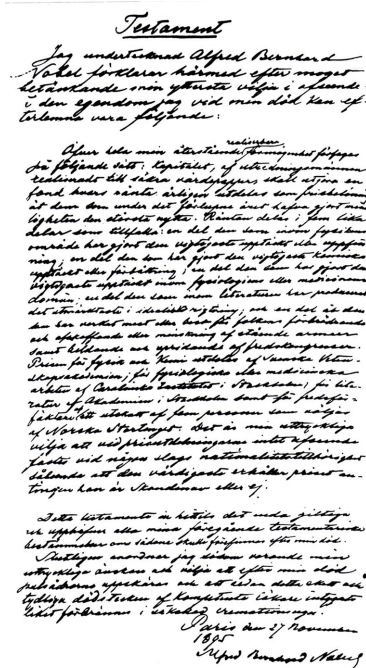 Testament
Jag undertecknad Alfred Bernhard
Nobel förklarar härmed efter moget
betänkande min yttersta vilja i afseende
å den egendom jag vid min död kan ef-
terlemna vara följande:
realiserbara
Öfver hela min återstående förmögenhet förfoges
på följande sätt: Kapitalet, af utredningsmännen
realiseradt till säkra värdepapper, skall utgöra en
fond hvars ränta årligen utdelas som prisbelöning
åt dem som under det förlupne året hafva gjort men-
sligheten den största nytta. Räntan delas i fem lika
delar som tillfalla: en del den som inom fysikens
område har gjort den vigtigaste upptäckt eller uppfin-
ning; en del den som har gjort den vigtigaste kemiska
upptäckt eller förbättring; en del den som har gjort den
vigtigaste upptäckt inom fysiologiens eller medicinens
domän; en del den som inom literaturen har producerat
det utmärktaste i idealisk rigtning; och en del åt den
som har verkat mest eller best för folkens förbrödrande
och afskaffande eller minskning af stående armeer
samt bildande och spridande af fredskongresser.
Prisen för fysik och kemi utdelas af Svenska Veten-
skapsakademien; för fysiologiska eller medicinska
arbeten af Carolinska Institutet i Stockholm; för lite-
ratur af Akademien i Stockholm samt för fredsför-
fäktare af ett utskott af fem personer som väljas
af Norska Stortinget. Det är min uttryckliga
vilja att vid prisutdelningarne intet afseende
fästes vid någon slags nationalitetstillhörighet
sålunda att den värdigaste erhåller priset an-
tingen han är Skandinav eller ej.
Detta testamente är hittils det enda giltiga
och upphäfver alla mina föregående testamentariska
bestämmelser om sådana skulle förefinnas efter min död.
Slutligen anordnar jag såsom varande min
uttryckliga önskan och vilja att efter min död
pulsådrorna uppskäras och att sedan detta skett och
tydliga dödstecken af kompetenta läkare intygats
liket förbrännes i såkallad crematorieugn.
Paris den 27 November
1895
Alfred Bernhard Nobel